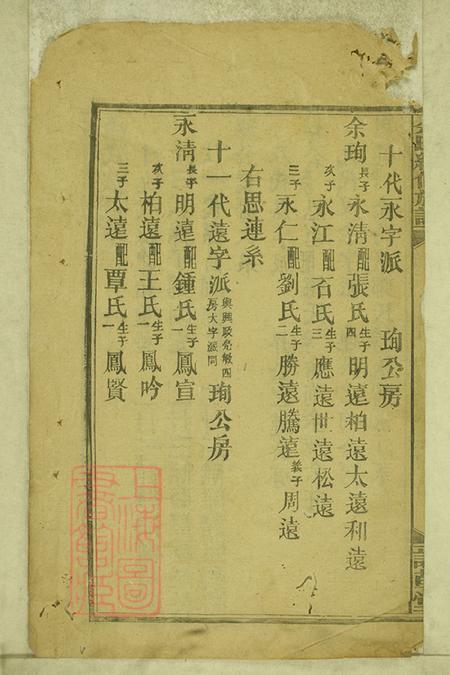 十代永字派 珣公房
余珣長子永清配張氏生子四明遠柏遠太遠利遠
次子永江配石氏生子三應遠世遠松遠
三子永仁配劉氏生子二勝遠騰遠義子周遠
右思連系
十一代遠字派 房大字派同 珣公房
永清長子明遠配鍾氏生子一鳳宣
次子柏遠配王氏生子一鳳吟
三子太遠配覃氏生子一鳳賢
上海圖書館藏